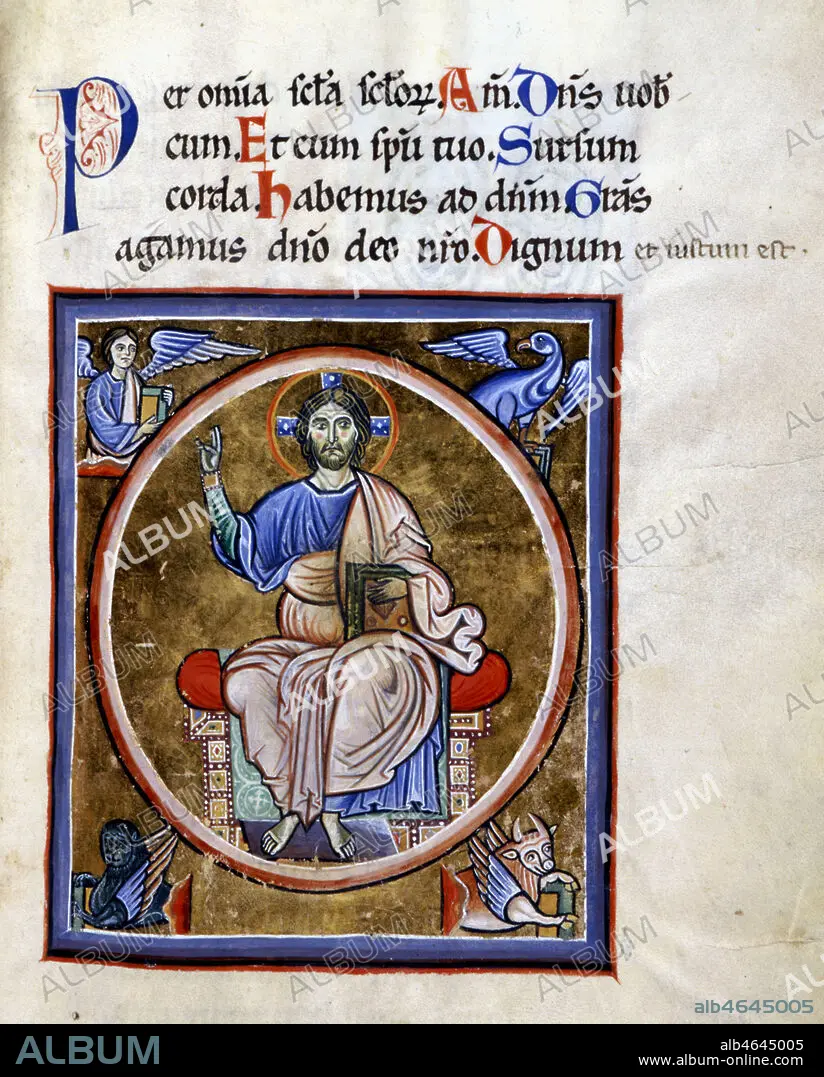 Per om̄a sc̄la sc̄loꝝ. Am̄. Dn̄s uob
cum. Et cum sp̄u tuo. Sursum
corda. habemus ad dn̄m. Grās
agamus dn̄o deo nr̄o. Dignum et iustum est.
alb4645005
ALBUM
alb4645005
www.album-online.com